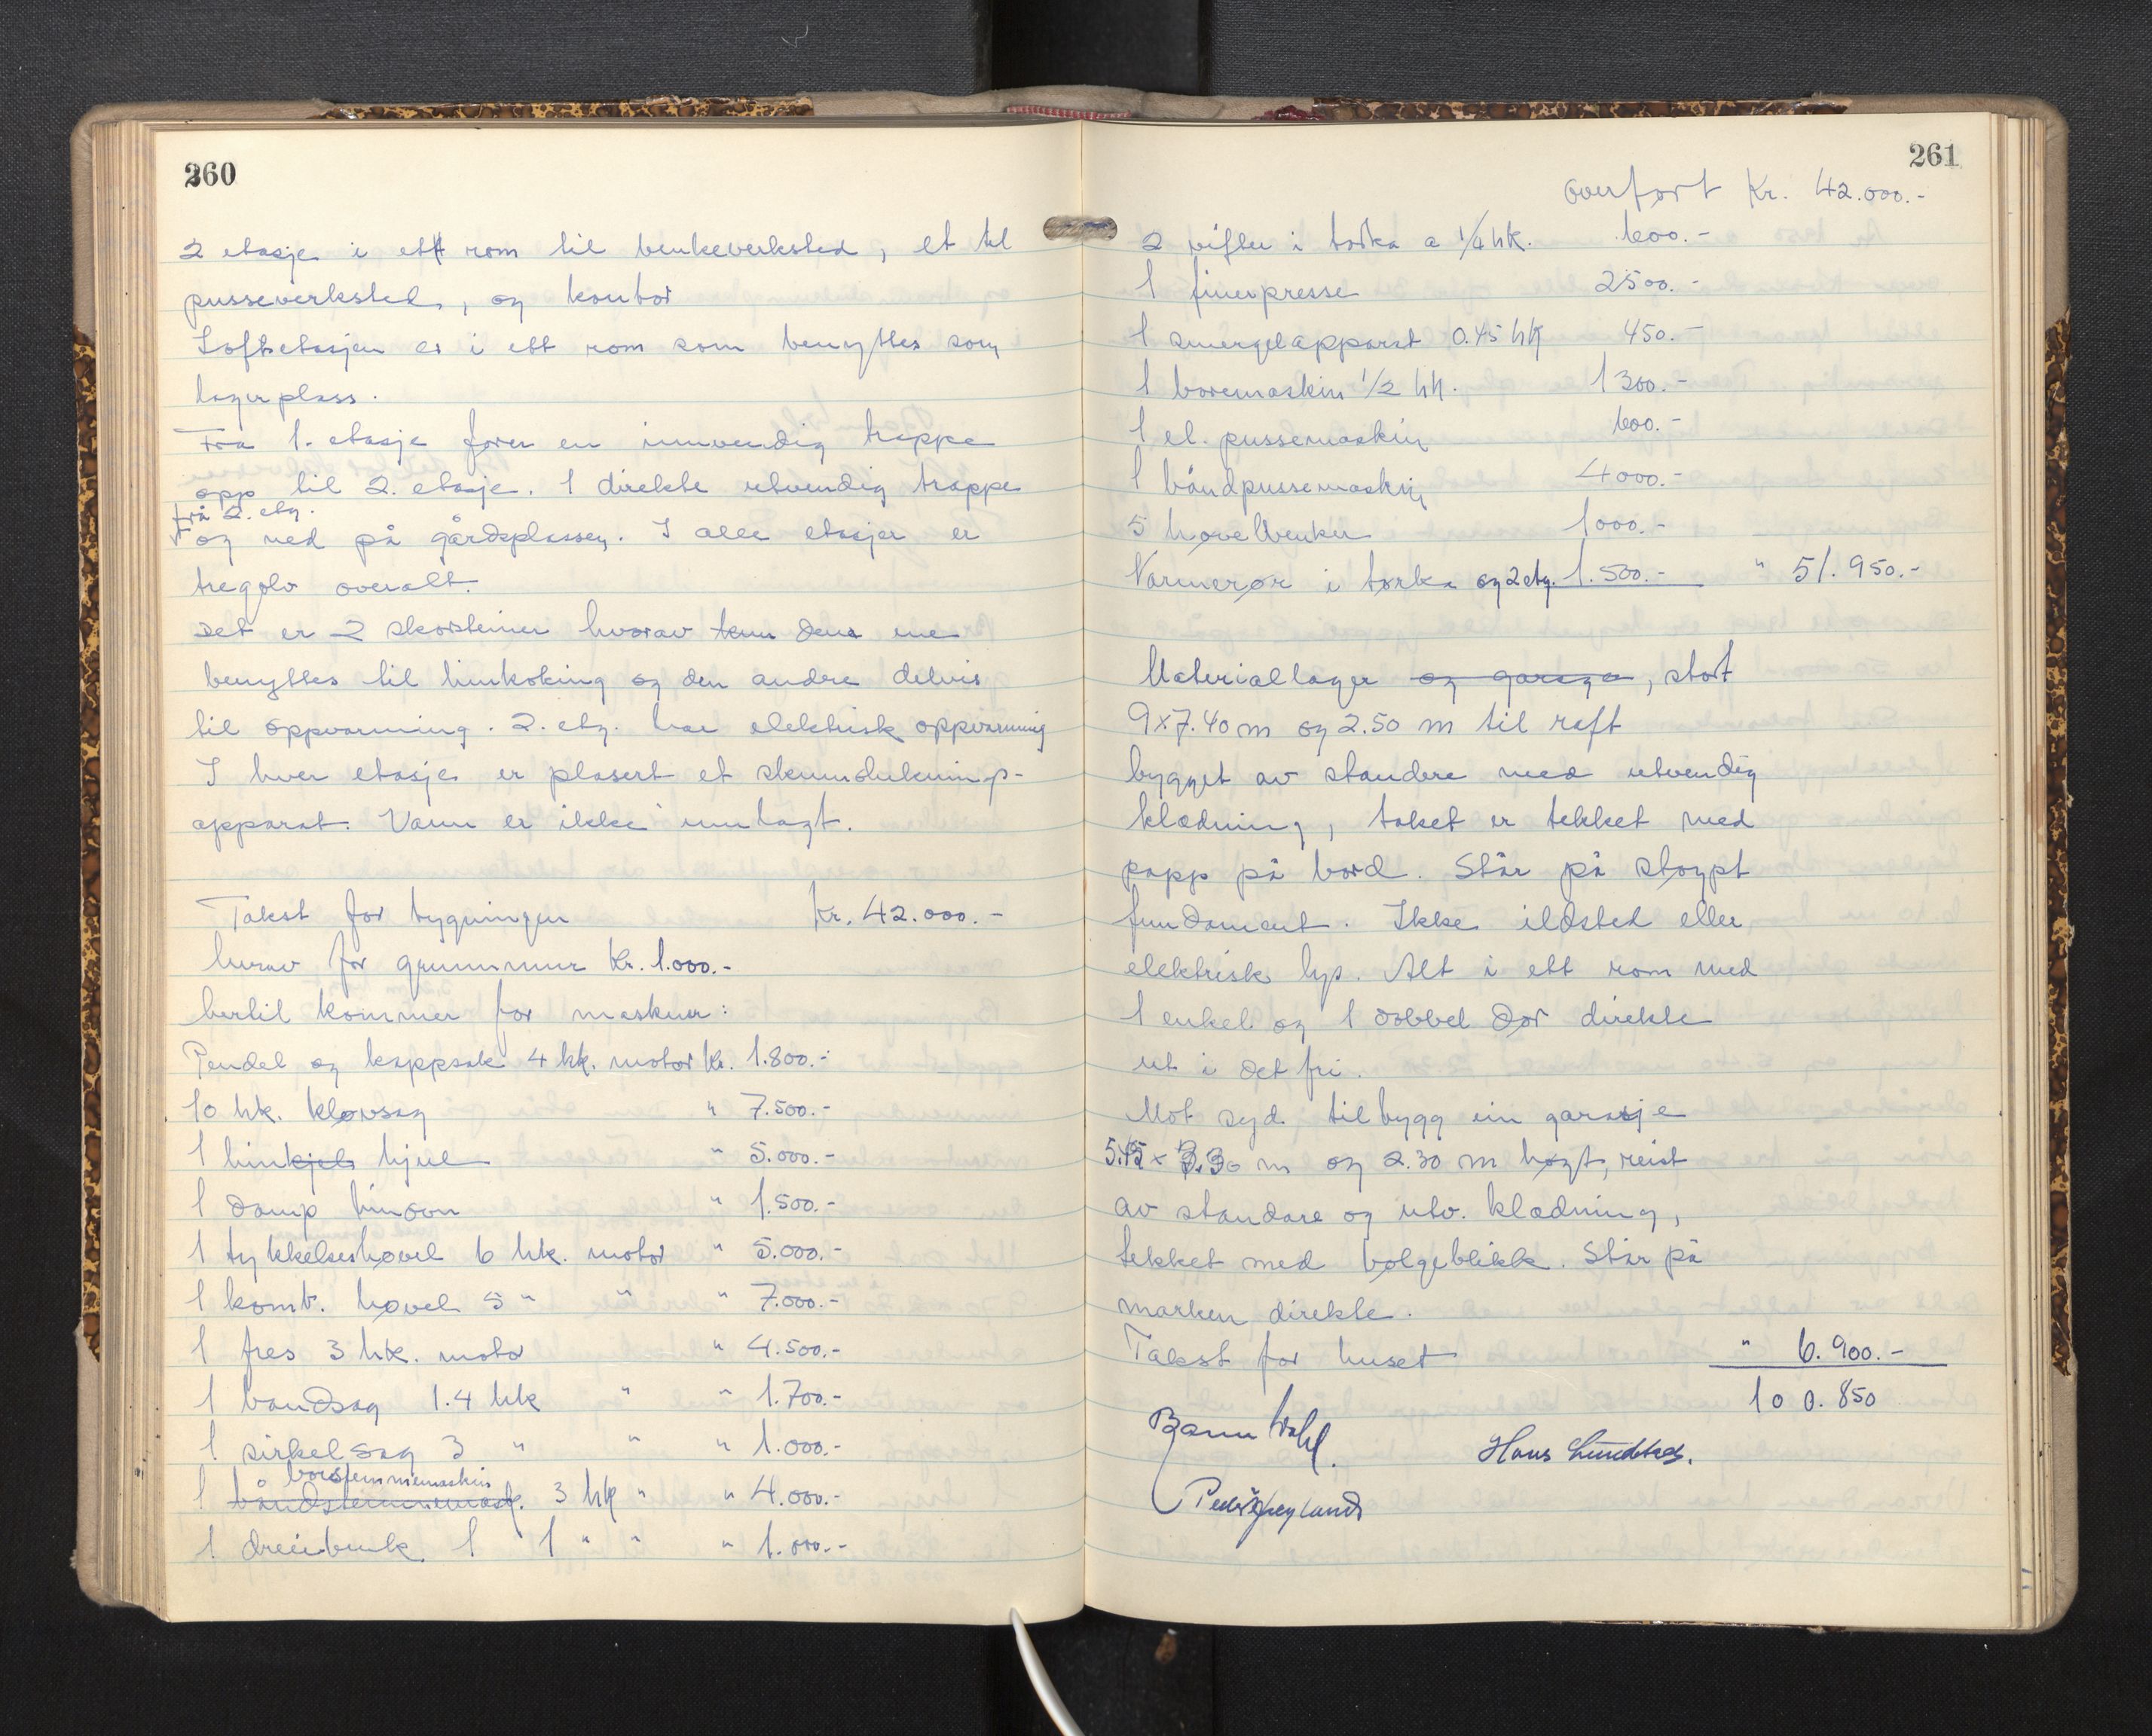 260
2 etasje i ett rom til benkeverksted, et til
pusseverksted, og kontor
Loftsetasjen er i ett rom som benyttes som
lagerplass.
Fra 1. etasje fører en innvendig trappe
opp til 2. etasje. 1 direkte utvendig trappe
frå 2. etg.
og ned på gårdsplassen. I alle etasjer er
tregolv overalt.
Det er 2 skorsteiner hvorav kun den ene
benyttes til limkoking og den andre delvis
til oppvarming. 2. etg. har elektrisk oppvarming
I hver etasje er plasert et skumsluknings-
apparat. Vann er ikke innlagt.
Takst for bygningen Kr. 42.000.-
hvorav for grunnmur Kr. 1.000.-
hertil kommer for maskiner:
Pendel og kappsak 4 hk. motor Kr. 1.800.-
10 hk. kløvsag " 7.500.-
1 limkjele hjul " 5.000.-
1 damp limovn " 1.500.-
1 tykkelseshøvel 6 hk. motor " 5.000.-
1 komb. høvel 5 " " " 7.000.-
1 fres 3 hk. motor " 4.500.-
1 bandsag 1.4 hk " " 1.700.-
1 sirkelsag 3 " " " 1.000.-
borstemmemaskin
1 båndstemmemask. 3 hk " " 4.000.-
1 dreiebenk 1 1 " " " 1.000.-
261
Overført Kr. 42.000.-
2 vifter i tørka a 1/4 hk. 600.-
1 finerpresse 2500.-
1 smergelapparat 0.45 hk 450.-
1 boremaskin 1/2 hk. 1300.-
1 el. pussemaskin 600.-
1 båndpussemaskin 4000.-
5 høvelbenker 1000.-
Varmerør i tørka og 2 etg. 1.500.- " 51.950.-
Materiallager og garage, stort
9x7.40 m og 2.50 m til raft
bygget av standere med utvendig
klædning, taket er tekket med
papp på bord. Står på støypt
fundament. Ikke ildsted eller
elektrisk lys. Alt i ett rom med
1 enkel og 1 dobbel dør direkte
ut i det fri.
Mot syd tilbygg ein garasje
5.45 x 3.30 m og 2.30 m høgt, reist
av standare og utv. klædning,
tekket med bølgeblikk. Står på
marken direkte.
Takst for huset " 6.900.-
100.850
Hans Lundstad.